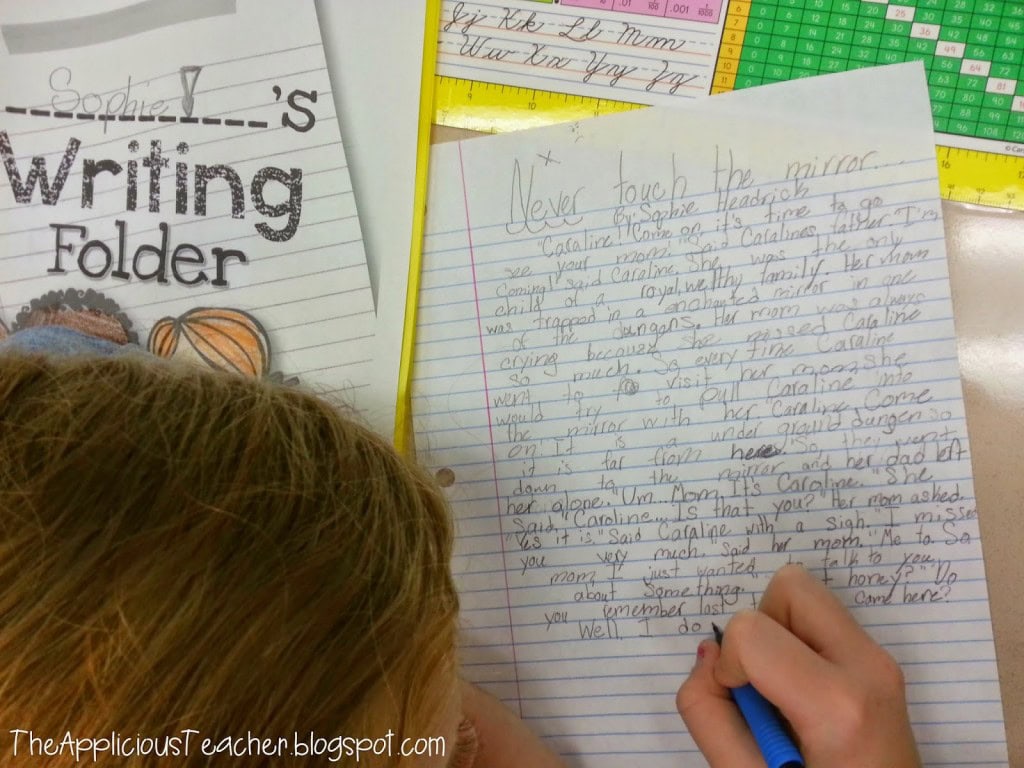 Sophie!
's
Writing
Folder
.01
.001
Jj Kk Ll Mm
Ww Xx Yy Zz
9 10
16
Never touch the mirror....
By: Sophie Headrich
"Caraline! Come on, it's time to go
see your mom." Said Caralines father. "I'm
Coming! said Caraline. She was the only
child of a royal, welthy family. Her mom
was trapped in a enchanted mirror in one
of the dungans. Her mom was always
crying because she missed Caraline
so much. So every time Caraline
went to visit her mom, she
would try to pull Caraline into
the mirror with her. "Caraline Come
on. It is a under ground dungen so
it is far from here. So, they went
down to the mirror and her dad left
her alone. "Um... Mom, It's Caroline." She
Said. "Caroline... Is that you?" Her mom asked.
"Yes it is" Said Caraline with a sigh. "I misse
you very much. said her mom. "Me to. So
mom, I just wanted to talk to you
about something. honey?" "Do
you remember last came here?
Well, I do
TheAppliciousTeacher.blogspot.com